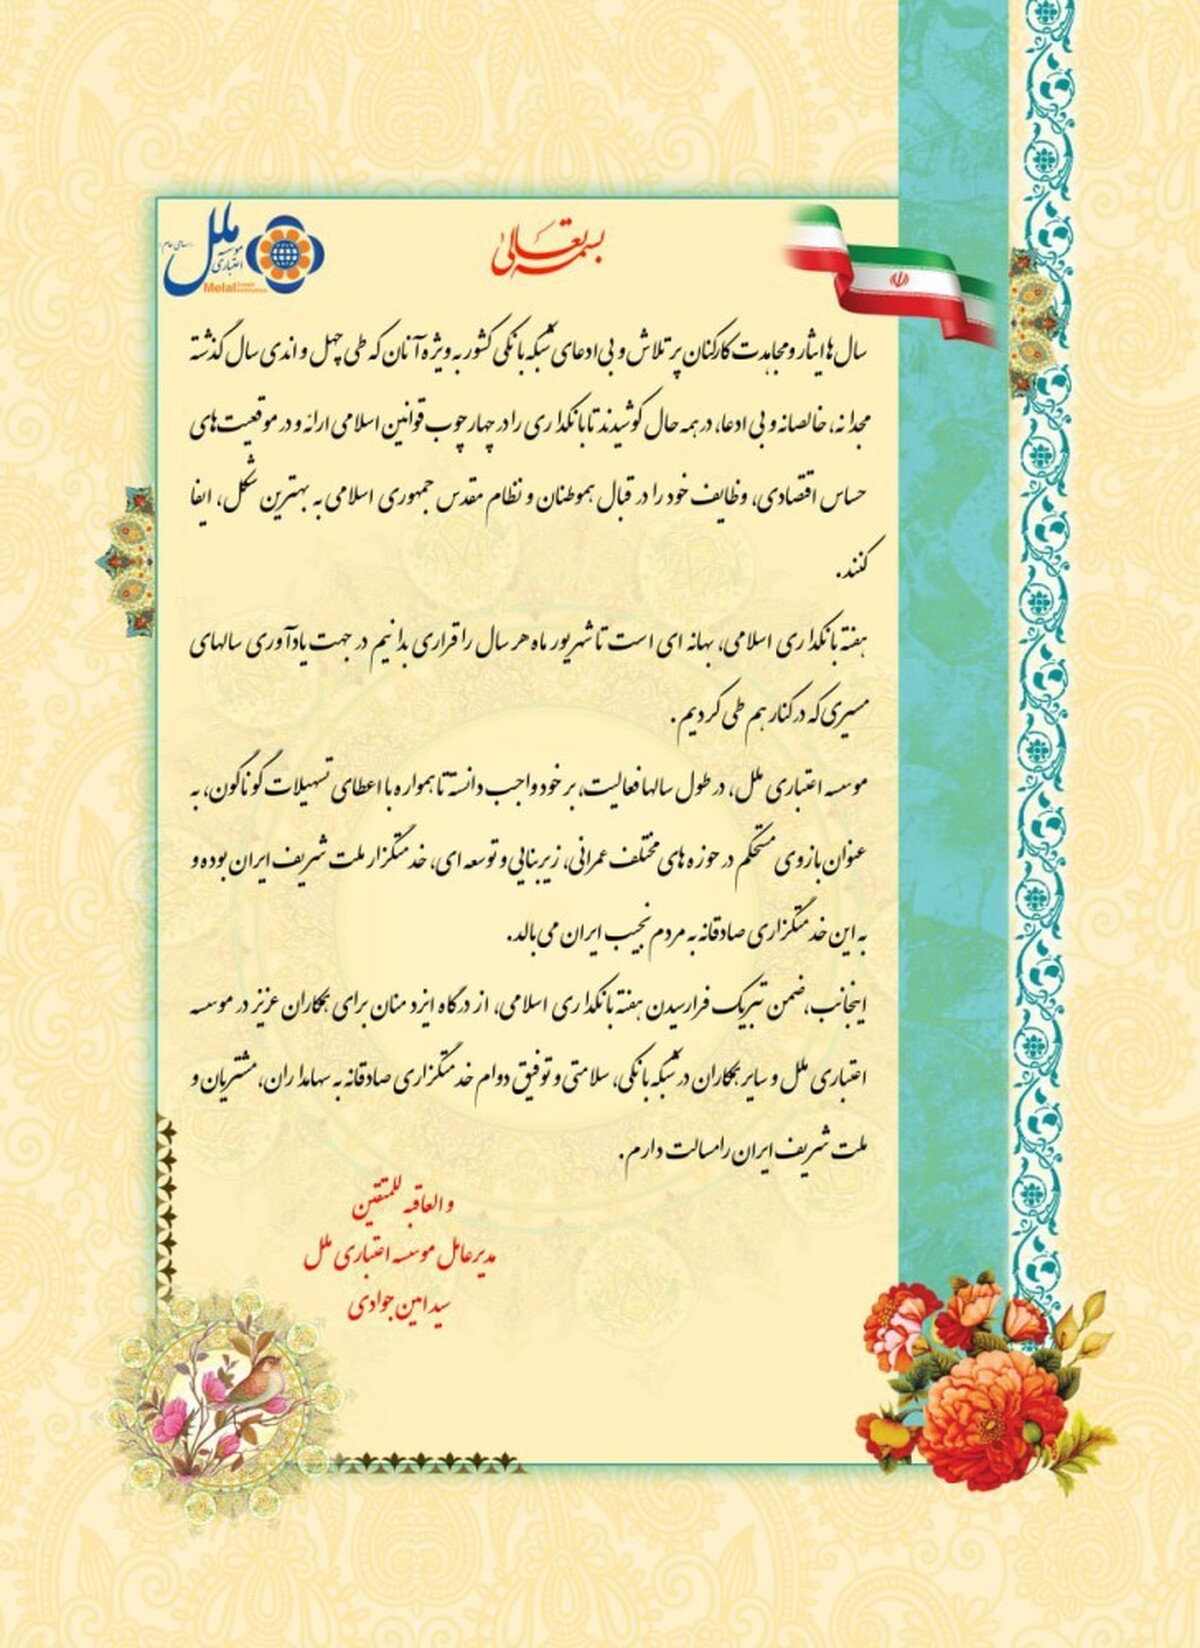 بسمه تعالی
ملل
موسسه
اعتباری
(سهامی عام)
Melal Credit Institution
سال ها ایثار و مجاهدت کارکنان پر تلاش و بی ادعای شبکه بانکی کشور به ویژه آنان که طی چهل و اندی سال گذشته
مجدانه، خالصانه و بی ادعا، در همه حال کوشیدند تا بانکداری را در چهارچوب قوانین اسلامی ارائه و در موقعیت های
حساس اقتصادی، وظایف خود را در قبال هموطنان و نظام مقدس جمهوری اسلامی به بهترین شکل، ایفا
کنند.
هفته بانکداری اسلامی، بهانه ای است تا شهریور ماه هر سال را قراری بدانیم در جهت یادآوری سالهای
مسیری که در کنار هم طی کردیم.
موسسه اعتباری ملل، در طول سالها فعالیت، بر خود واجب دانسته تا همواره با اعطای تسهیلات گوناگون، به
عنوان بازوی مستحکم در حوزه های مختلف عمرانی، زیربنایی و توسعه ای، خدمتگزار ملت شریف ایران بوده و
به این خدمتگزاری صادقانه به مردم نجیب ایران می بالد.
اینجانب، ضمن تبریک فرارسیدن هفته بانکداری اسلامی، از درگاه ایزد منان برای همکاران عزیز در موسسه
اعتباری ملل و سایر همکاران در شبکه بانکی، سلامتی و توفیق دوام خدمتگزاری صادقانه به سهامداران، مشتریان و
ملت شریف ایران را مسالت دارم.
و العاقبه للمتقین
مدیرعامل موسسه اعتباری ملل
سید امین جوادی